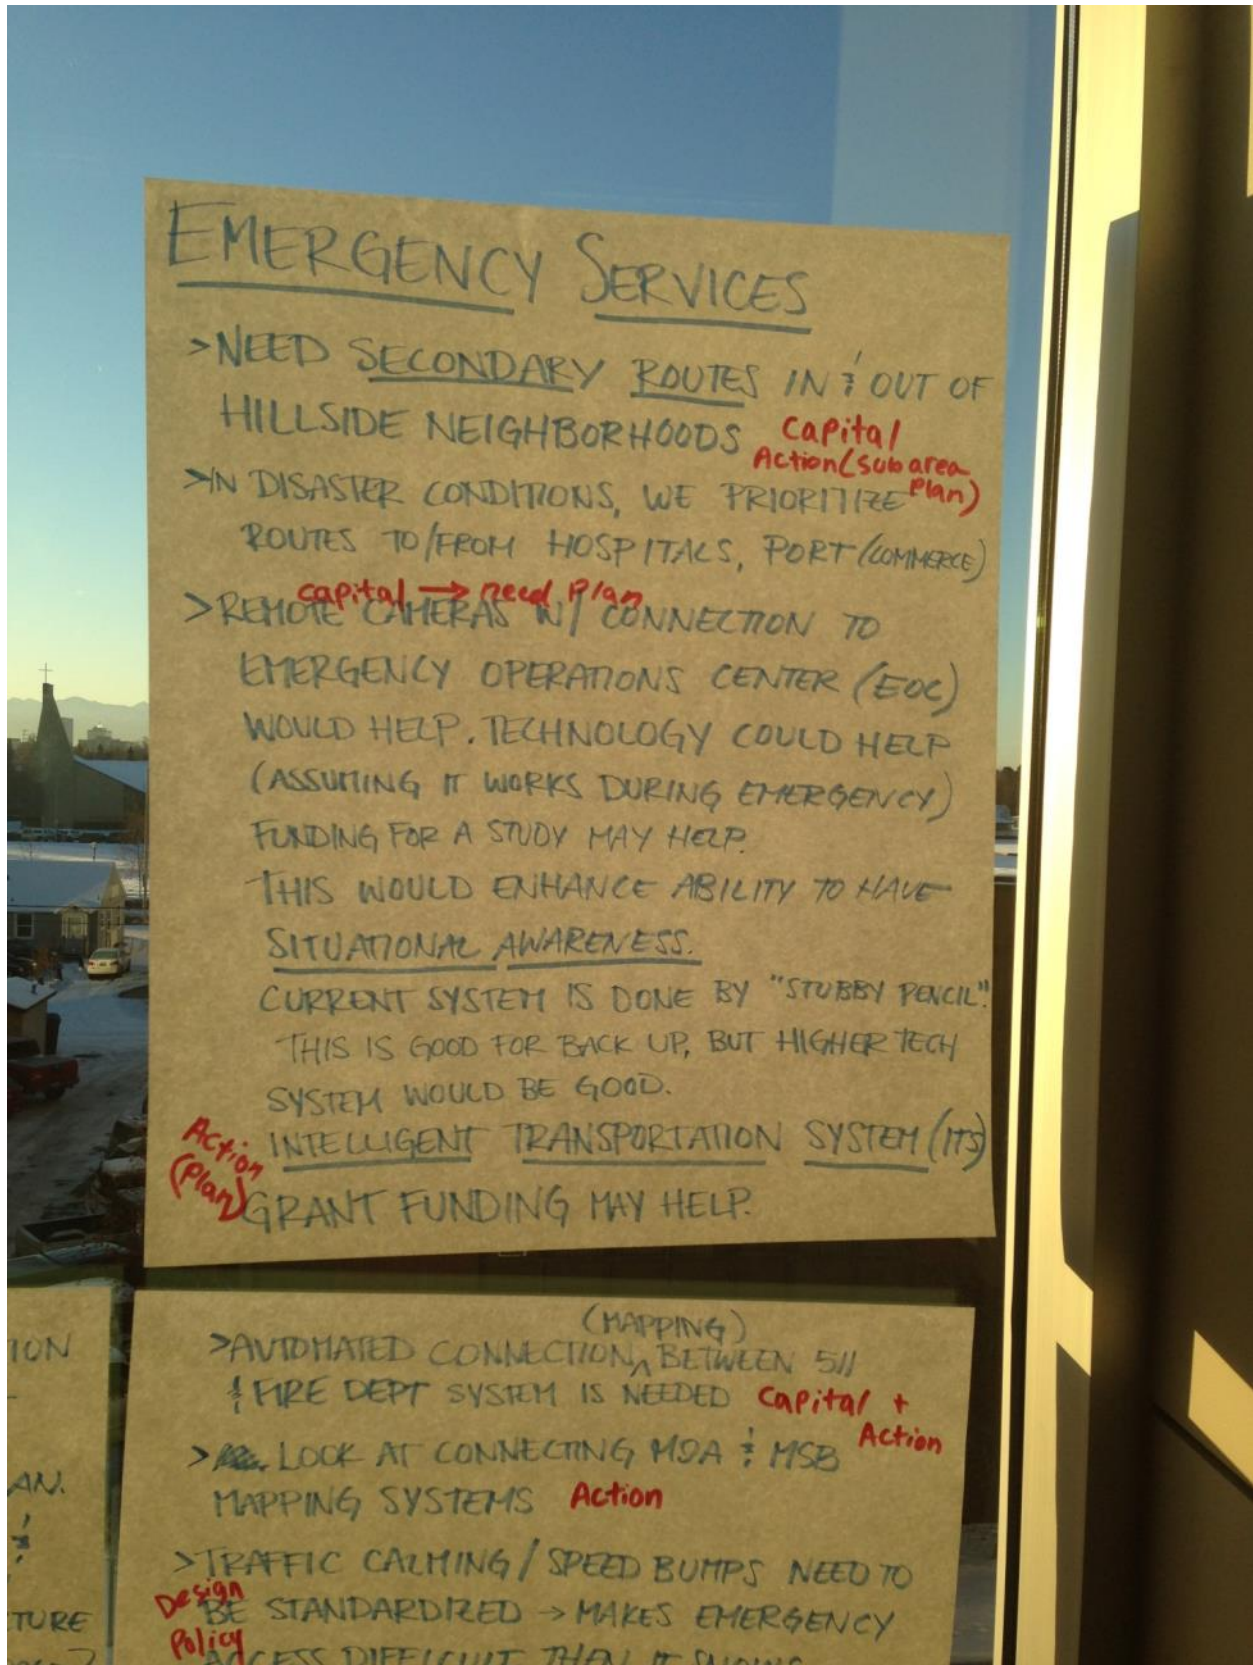 EMERGENCY SERVICES
>NEED SECONDARY ROUTES IN & OUT OF
HILLSIDE NEIGHBORHOODS
Capital
Action (subarea
Plan)
>IN DISASTER CONDITIONS, WE PRIORITIZE
ROUTES TO/FROM HOSPITALS, PORT (COMMERCE)
capital → need Plan
>REMOTE CAMERAS W/ CONNECTION TO
EMERGENCY OPERATIONS CENTER (EOC)
WOULD HELP. TECHNOLOGY COULD HELP
(ASSUMING IT WORKS DURING EMERGENCY)
FUNDING FOR A STUDY MAY HELP.
THIS WOULD ENHANCE ABILITY TO HAVE
SITUATIONAL AWARENESS.
CURRENT SYSTEM IS DONE BY "STUBBY PENCIL".
THIS IS GOOD FOR BACK UP, BUT HIGHER TECH
SYSTEM WOULD BE GOOD.
INTELLIGENT TRANSPORTATION SYSTEM (ITS)
Action
(Plan)
GRANT FUNDING MAY HELP.
(MAPPING)
>AUTOMATED CONNECTION ^ BETWEEN 511
& FIRE DEPT SYSTEM IS NEEDED
Capital +
Action
> LOOK AT CONNECTING MOA & MSB
MAPPING SYSTEMS Action
>TRAFFIC CALMING/SPEED BUMPS NEED TO
Design
Policy
BE STANDARDIZED → MAKES EMERGENCY
ACCESS DIFFICULT THEN IT SNOWS
ION
AN.
&
TURE